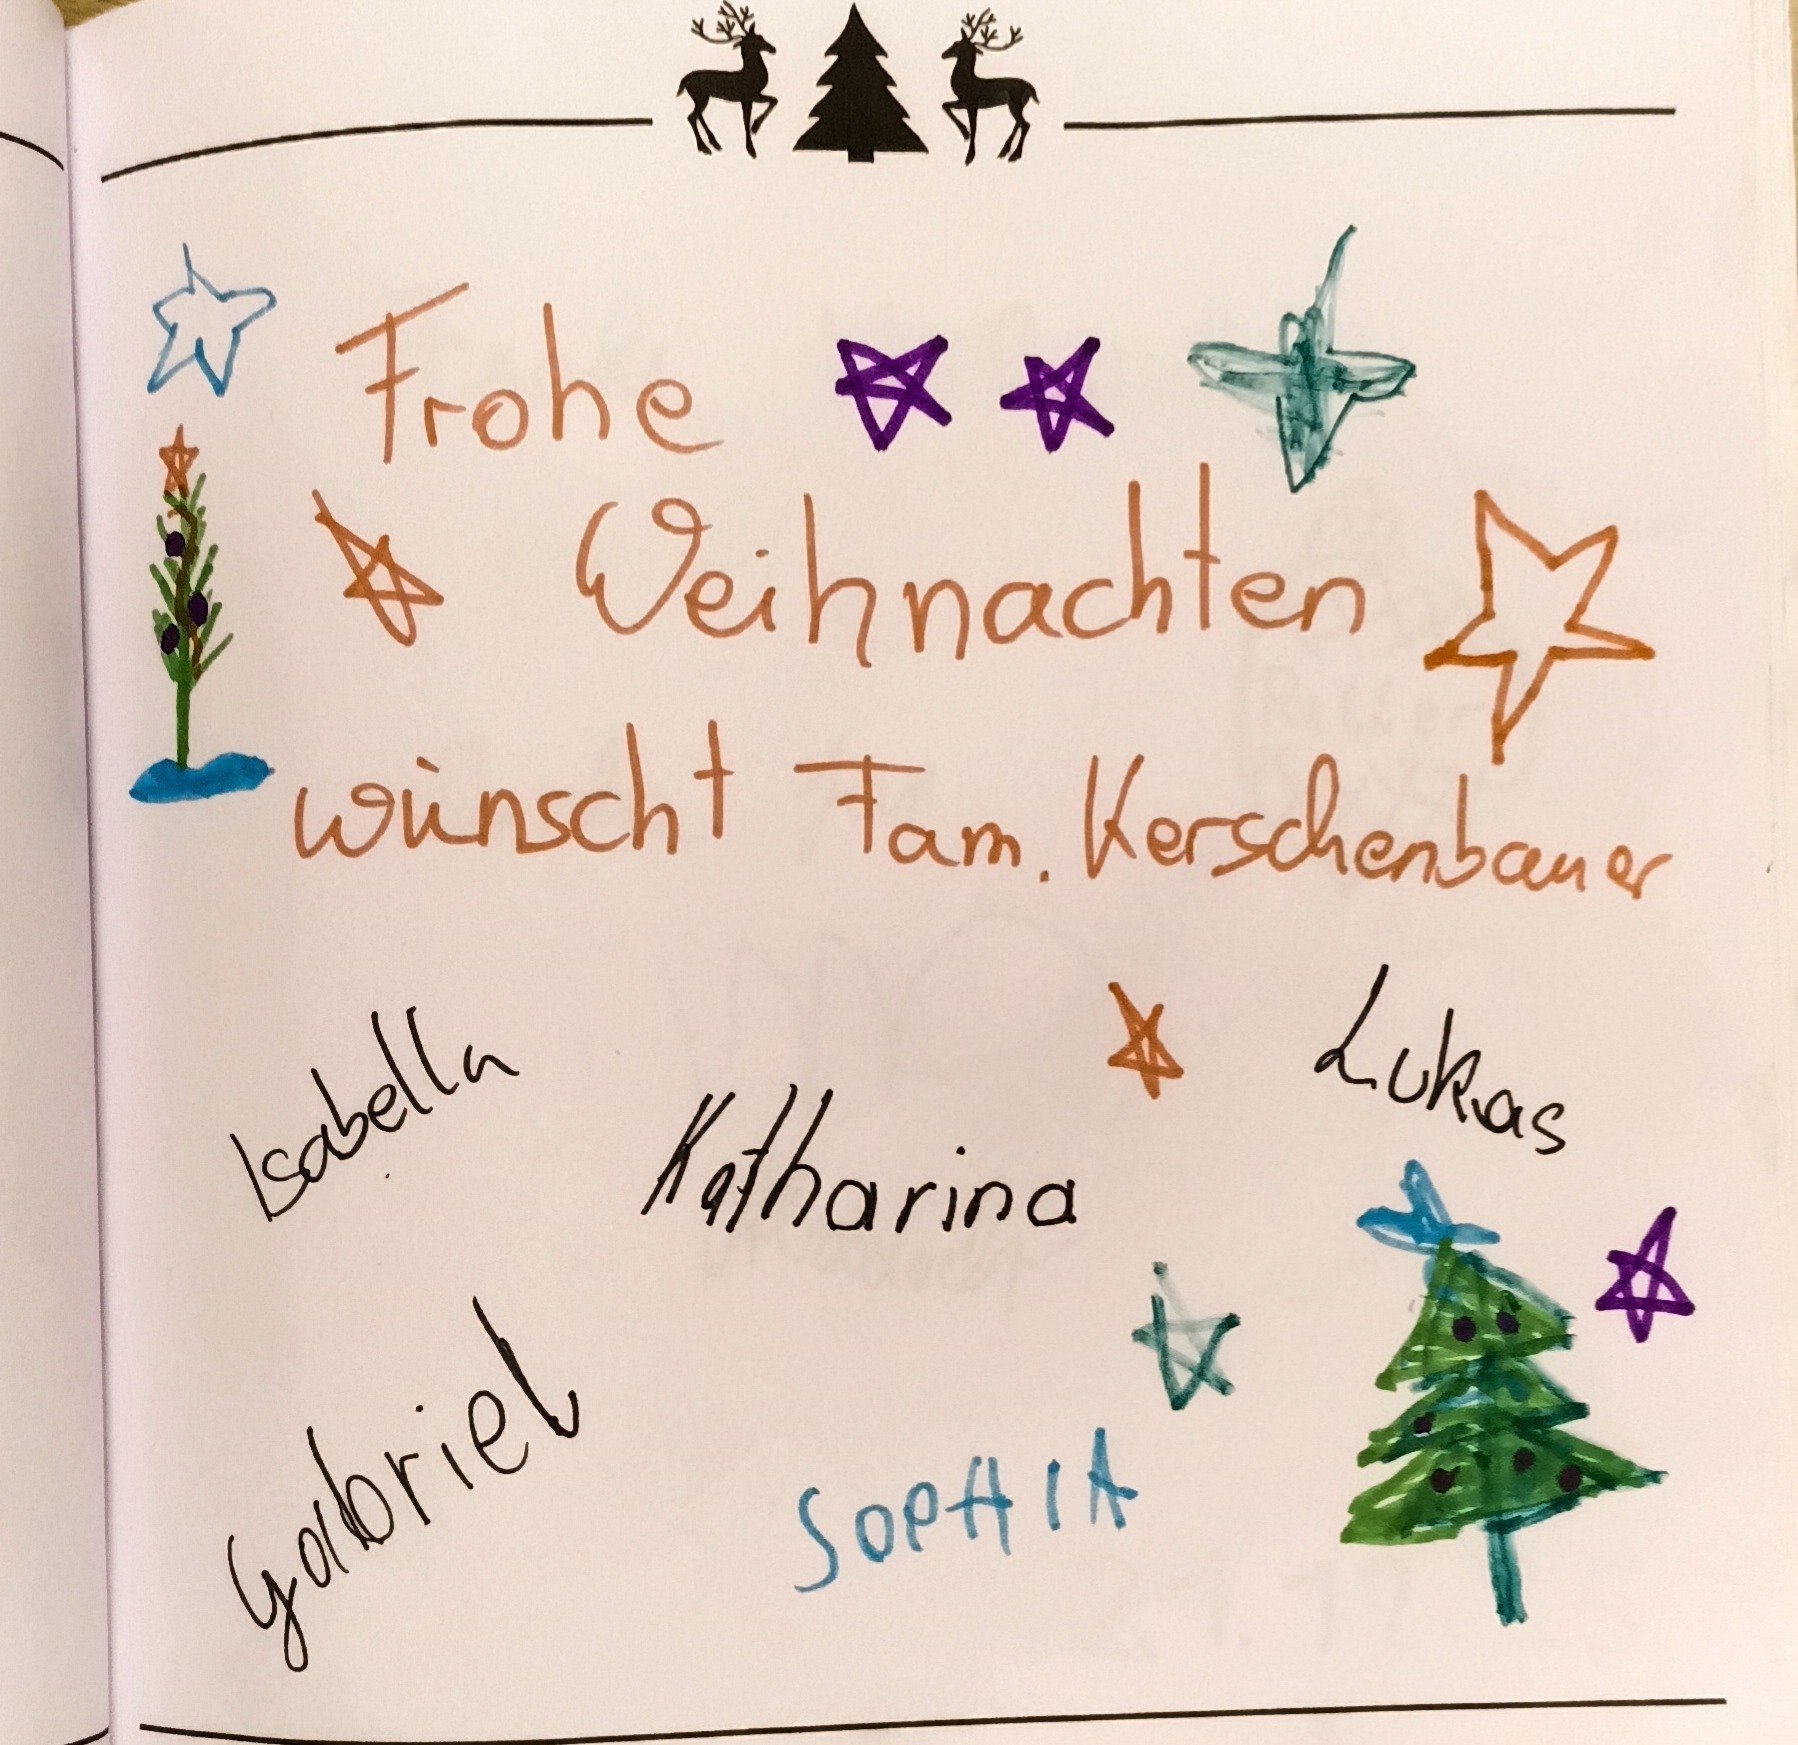 Frohe
Weihnachten
wünscht Fam. Kerschenbauer
Isabella
Katharina
Lukas
Gabriel
SOPHIA